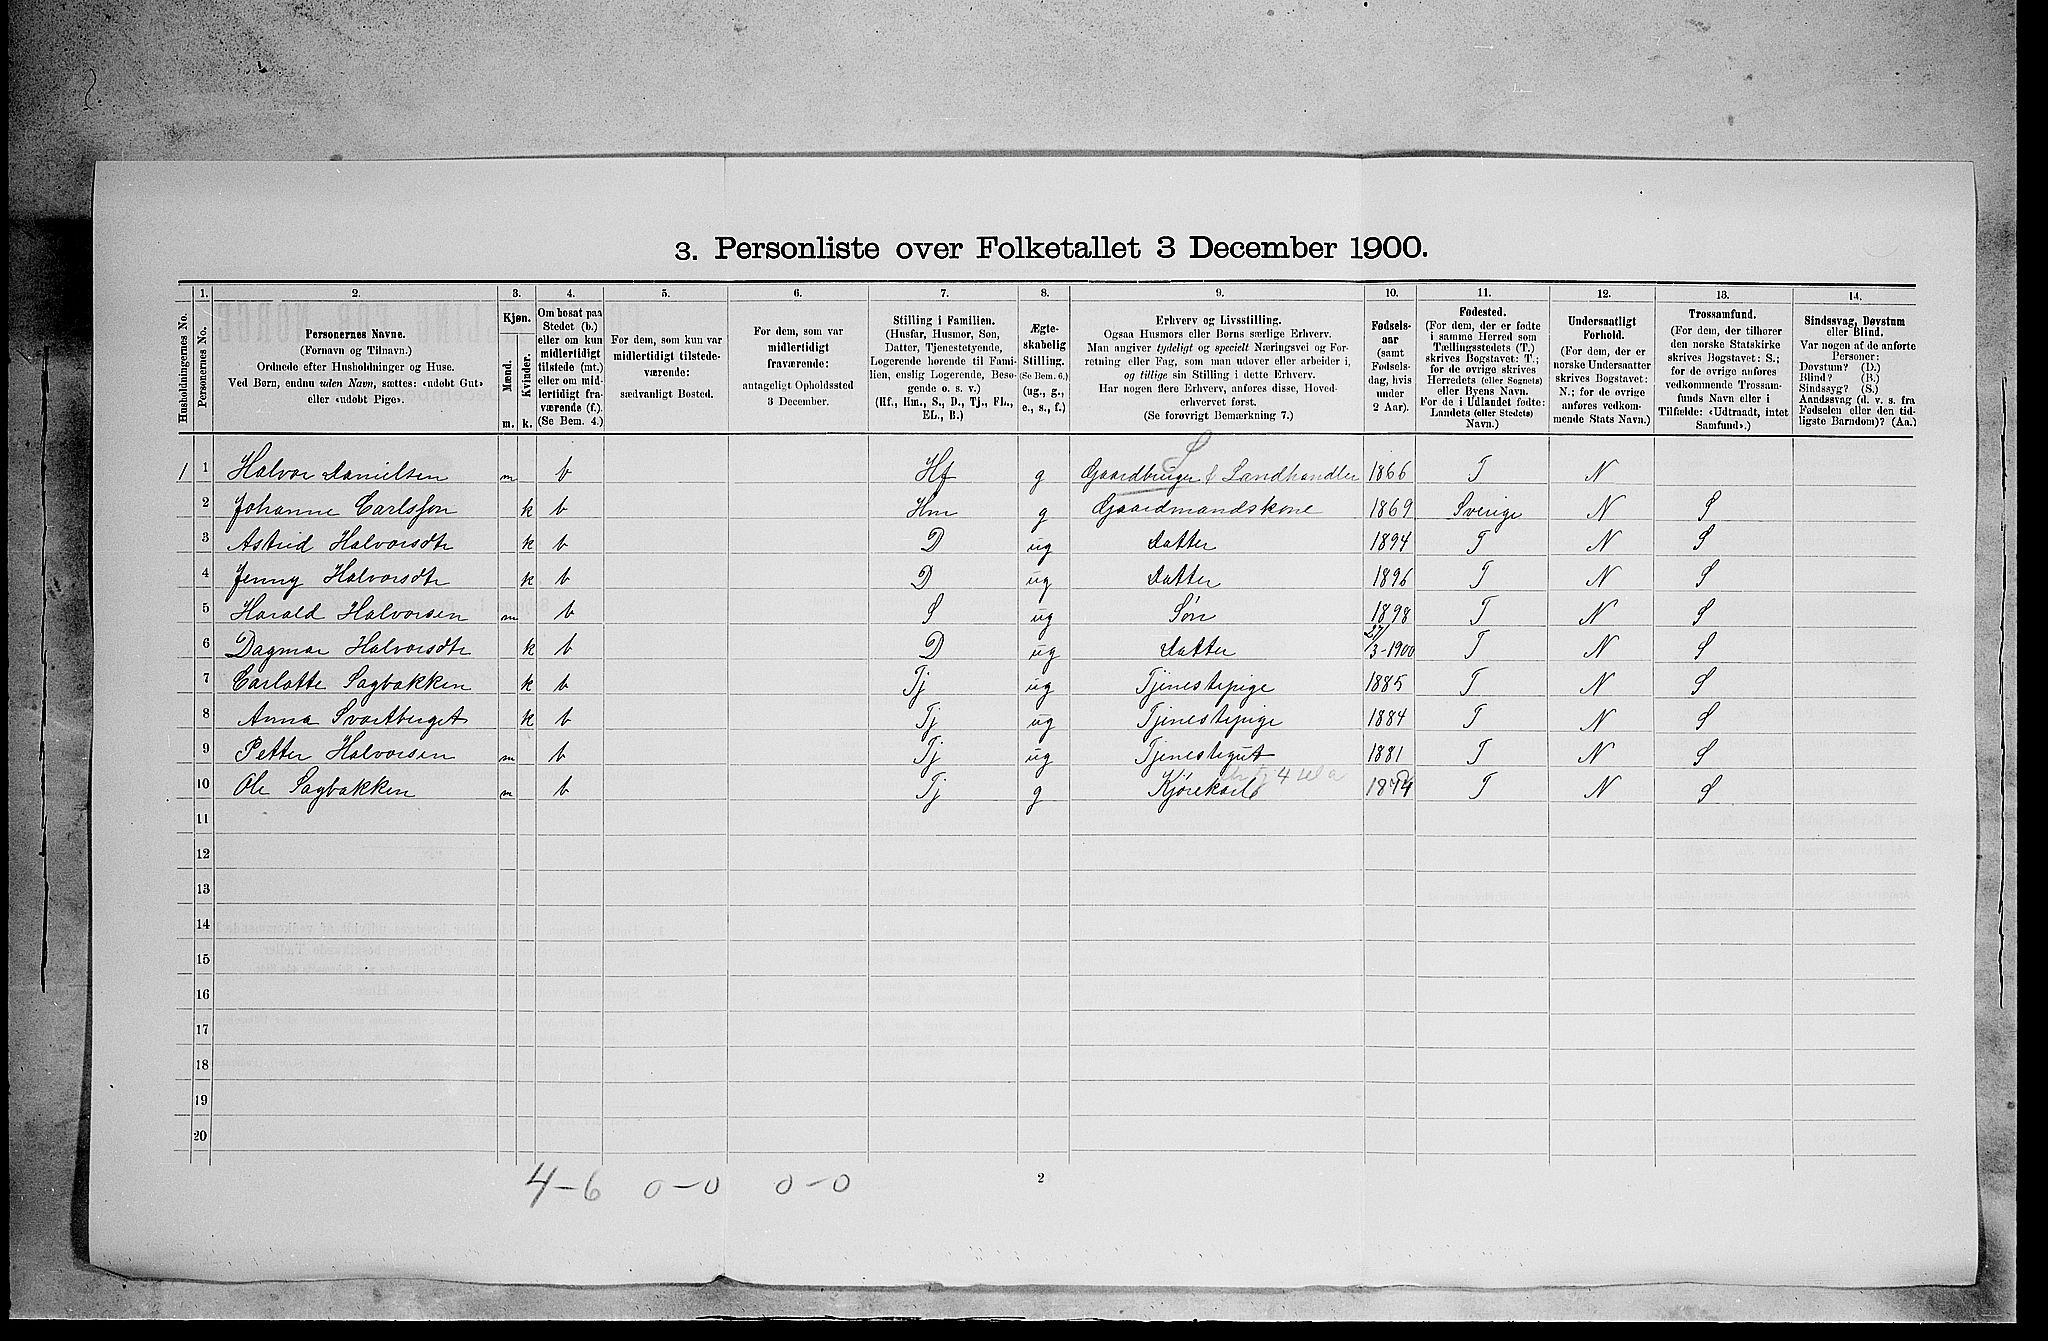 3. Personliste over Folketallet 3 December 1900.
Husholdningernes No.
1.
Personernes No.
2.
Personernes Navne.
(Fornavn og Tilnavn.)
Ordnede efter Husholdninger og Huse.
Ved Børn, endnu uden Navn, sættes: «udøbt Gut»
eller «udøbt Pige».
3.
Kjøn.
Mænd.
Kvinder.
m. k.
4.
Om bosat paa
Stedet (b.)
eller om kun
midlertidigt
tilstede (mt.)
eller om mid-
lertidigt fra-
værende (f.)
(Se Bem. 4.)
5.
For dem, som kun var
midlertidigt tilstede-
værende:
sædvanligt Bosted.
6.
For dem, som var
midlertidigt
fraværende:
antageligt Opholdssted
3 December.
7.
Stilling i Familien.
(Husfar, Husmor, Søn,
Datter, Tjenestetyende,
Logerende hørende til Fami-
lien, enslig Logerende, Besø-
gende o. s. v.)
(Hf., Hm., S., D., Tj., FL.,
EL., B.)
8.
Ægte-
skabelig
Stilling.
(Se Bem. 6.)
(ug., g.,
e., s., f.)
9.
Erhverv og Livsstilling.
Ogsaa Husmors eller Børns særlige Erhverv.
Man angiver tydeligt og specielt Næringsvei og For-
retning eller Fag, som man udover eller arbeider i,
og tillige sin Stilling i dette Erhverv.
Har nogen flere Erhverv, anføres disse, Hoved-
erhvervet først.
(Se forøvrigt Bemærkning 7.)
10.
Fødsels-
aar
(samt
Fødsels-
dag, hvis
under
2 Aar).
11.
Fødested.
(For dem, der er fødte
i samme Herred som
Tællingsstedets (T.)
skrives Bogstavet: T.;
for de øvrige skrives
Herredets (eller Sognets)
eller Byens Navn.
For de i Udlandet fødte:
Landets (eller Stedets)
Navn.)
12.
Undersaatligt
Forhold.
(For dem, der er
norske Undersaatter
skrives Bogstavet:
N.; for de øvrige
anføres vedkom-
mende Stats Navn.)
13.
Trossamfund.
(For dem, der tilhører
den norske Statskirke
skrives Bogstavet: S.;
for de øvrige anføres
vedkommende Trossam-
funds Navn eller i
Tilfælde: «Udtraadt, intet
Samfund».)
14.
Sindssvag, Døvstum
eller Blind.
Var nogen af de anførte
Personer:
Døvstum? (D.)
Blind? (B.)
Sindssyg? (S.)
Aandssvag (d. v. s. fra
Fødselen eller den tid-
ligste Barndom)? (Aa.)
S
1 1 Halvor Danielsen m b Hf g Gaardbruger & Landhandler 1866 T N
2 Johanne Carlsson k b Hm g Gaardmandskone 1869 Sverige N S
3 Astrid Halvorsdtr k b D ug Datter 1894 T N S
4 Jenny Halvorsdtr k b D ug Datter 1896 T N S
5 Harald Halvorsen m b S ug Søn 1898 T N S
6 Dagmar Halvorsdtr k b D ug Datter 27/3-1900 T N S
7 Carlotte Sagbakken k b Tj ug Tjenestepige 1885 T N S
8 Anna Svartberget k b Tj ug Tjenestepige 1884 T N S
9 Petter Halvorsen m b Tj ug Tjenestegut 1881 T N S
10 Ole Sagbakken m b Tj g Kjørekarl T N S
11
12
13
14
15
16
17
18
19
20
4-6 0-0 0-0
2